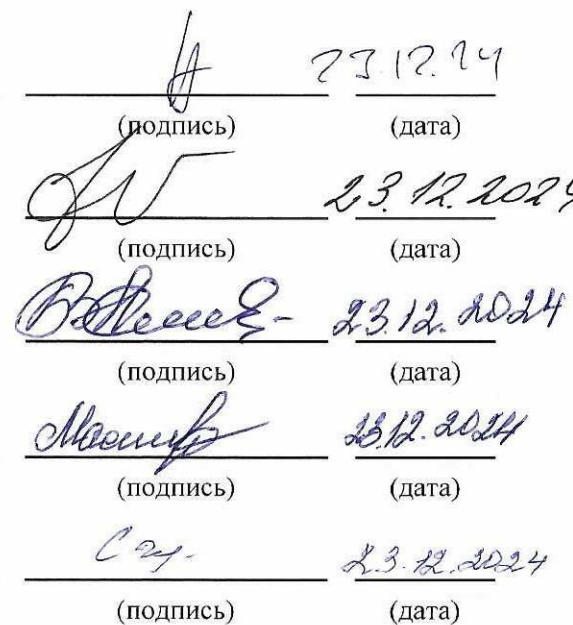 23.12.24
(подпись) (дата)
23.12.2024
(подпись) (дата)
23.12.2024
(подпись) (дата)
23.12.2024
(подпись) (дата)
23.12.2024
(подпись) (дата)